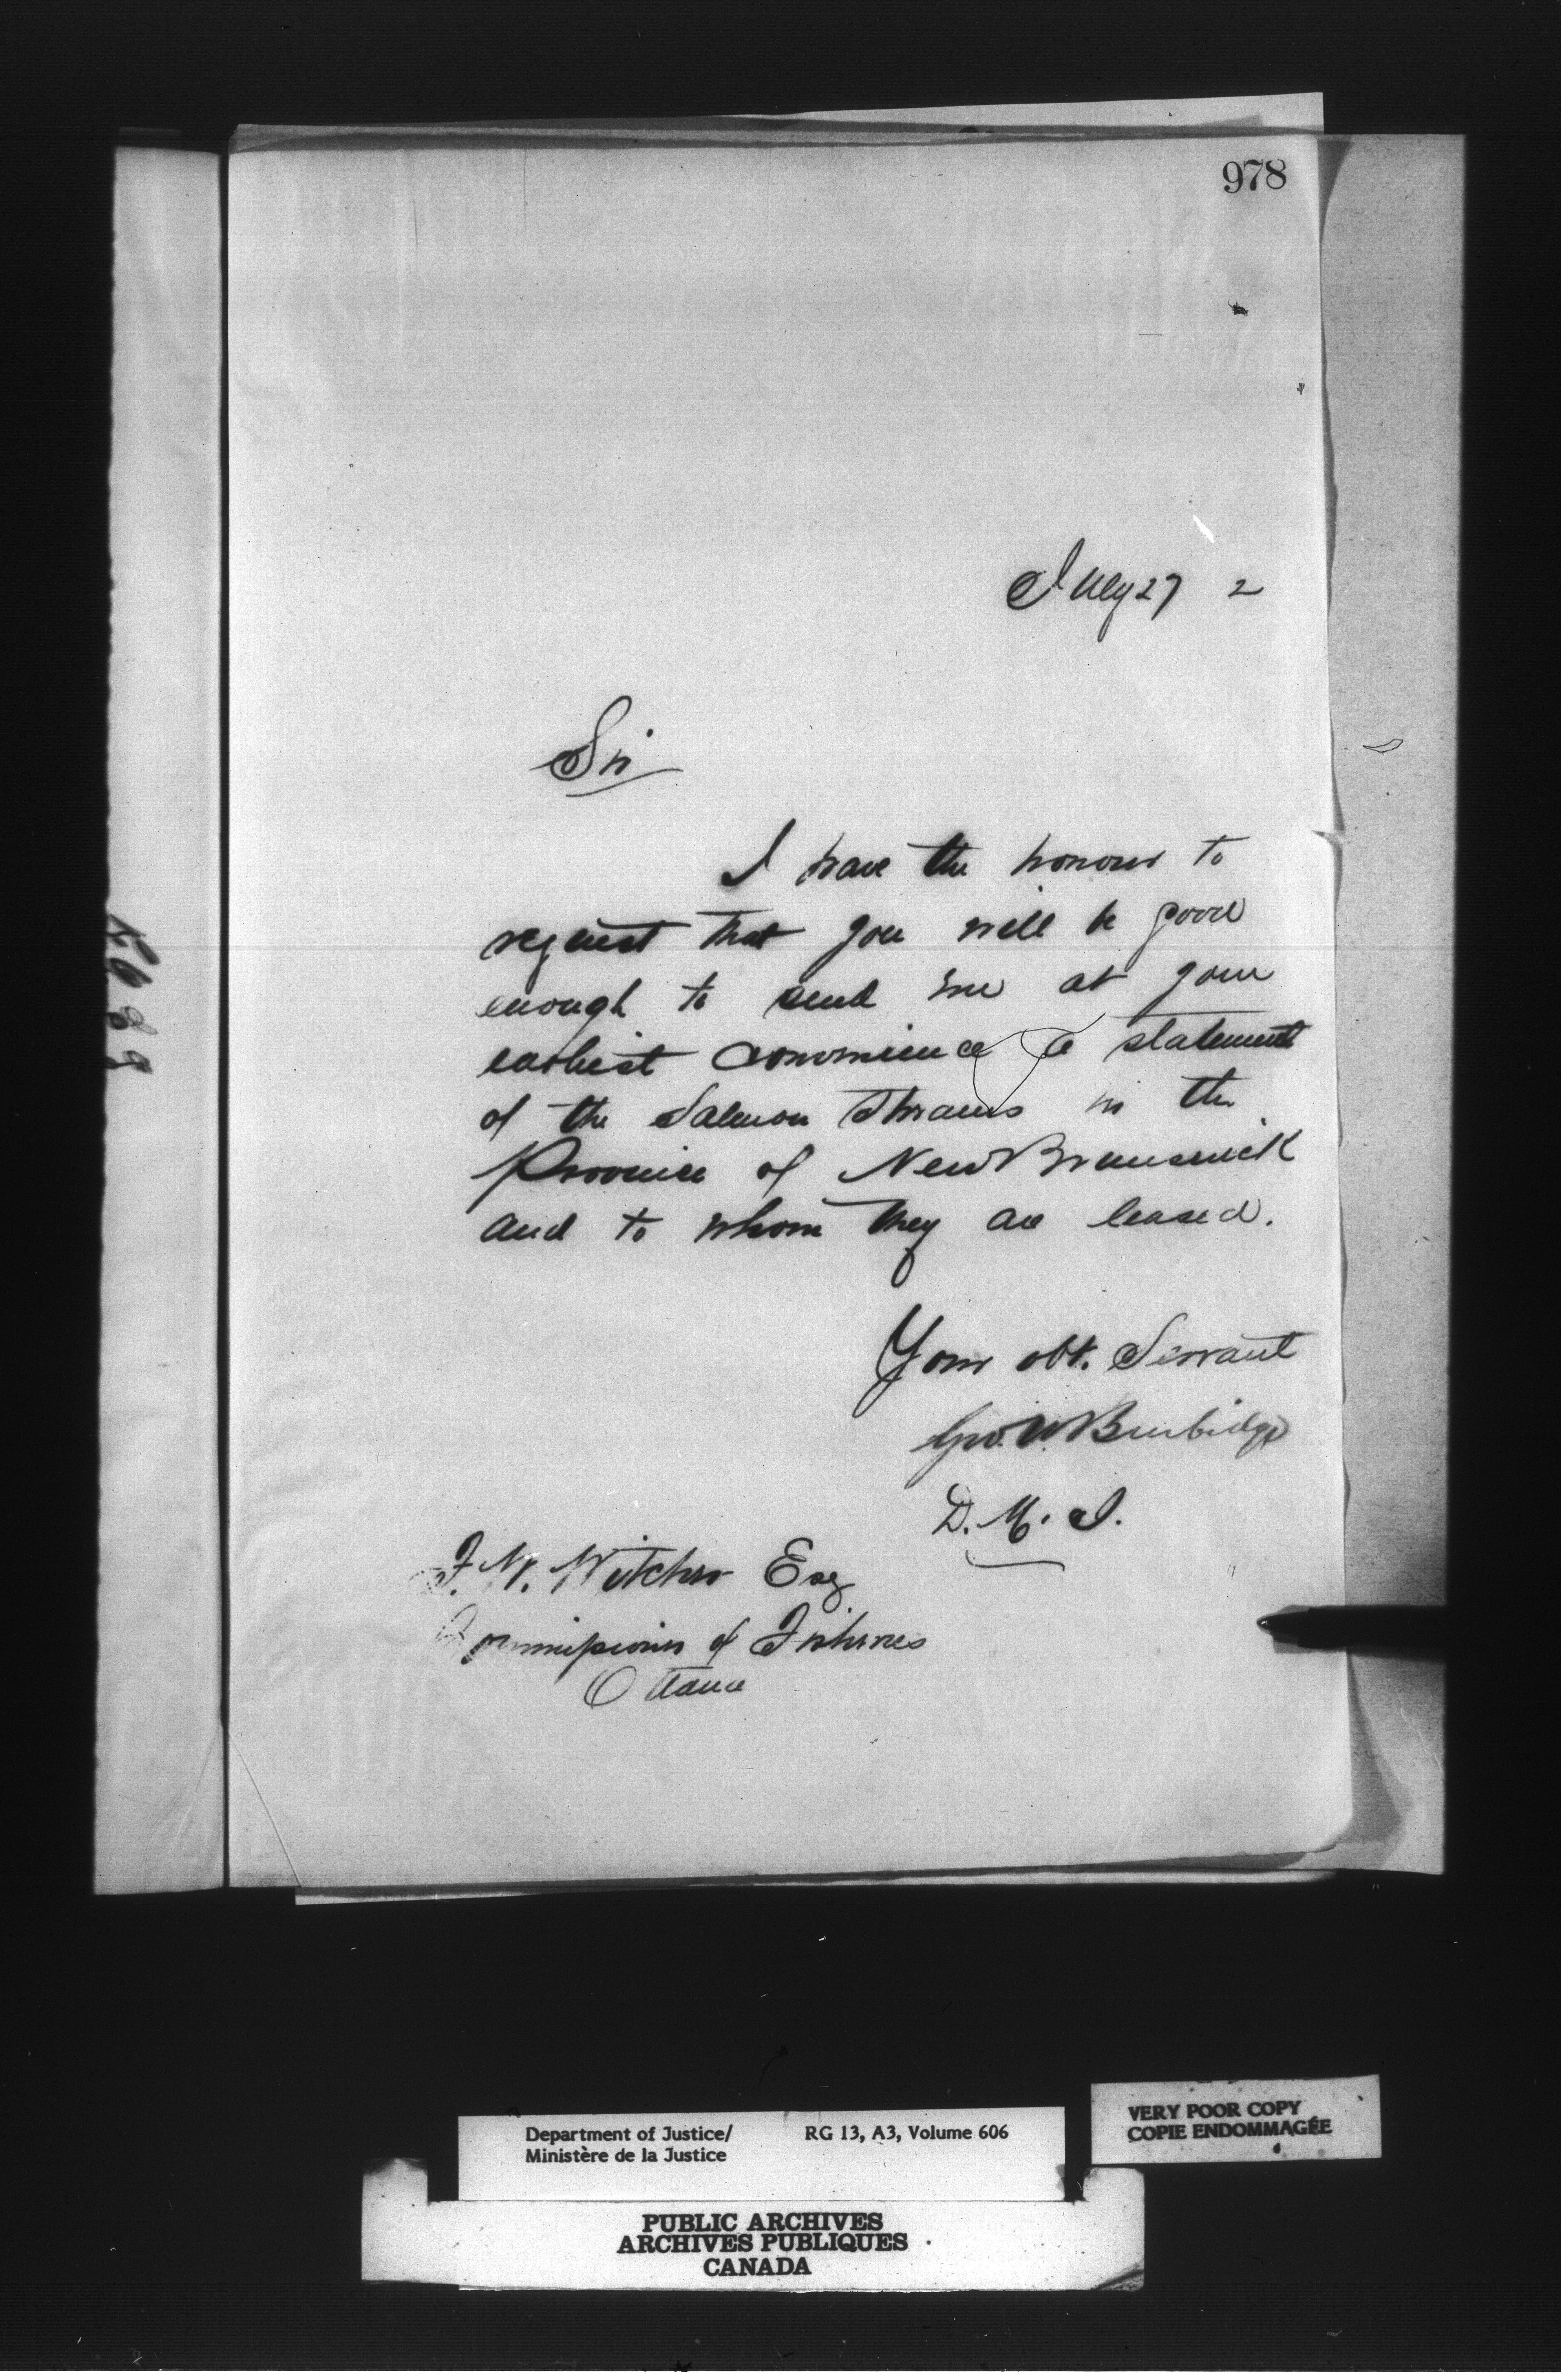 978
July 27 2
Sir
I have the honour to
request that you will be good
enough to send me at your
earliest convenience a statement
of the Salmon Streams in the
Province of New Brunswick
and to whom they are leased.
Your obt. Servant
Geo. W Burbidge
D. M. J.
F. W. Witcher Esq
Commissioner of Fisheries
Ottawa
Department of Justice/ RG 13, A3, Volume 606
Ministère de la Justice
VERY POOR COPY
COPIE ENDOMMAGÉE
PUBLIC ARCHIVES
ARCHIVES PUBLIQUES
CANADA